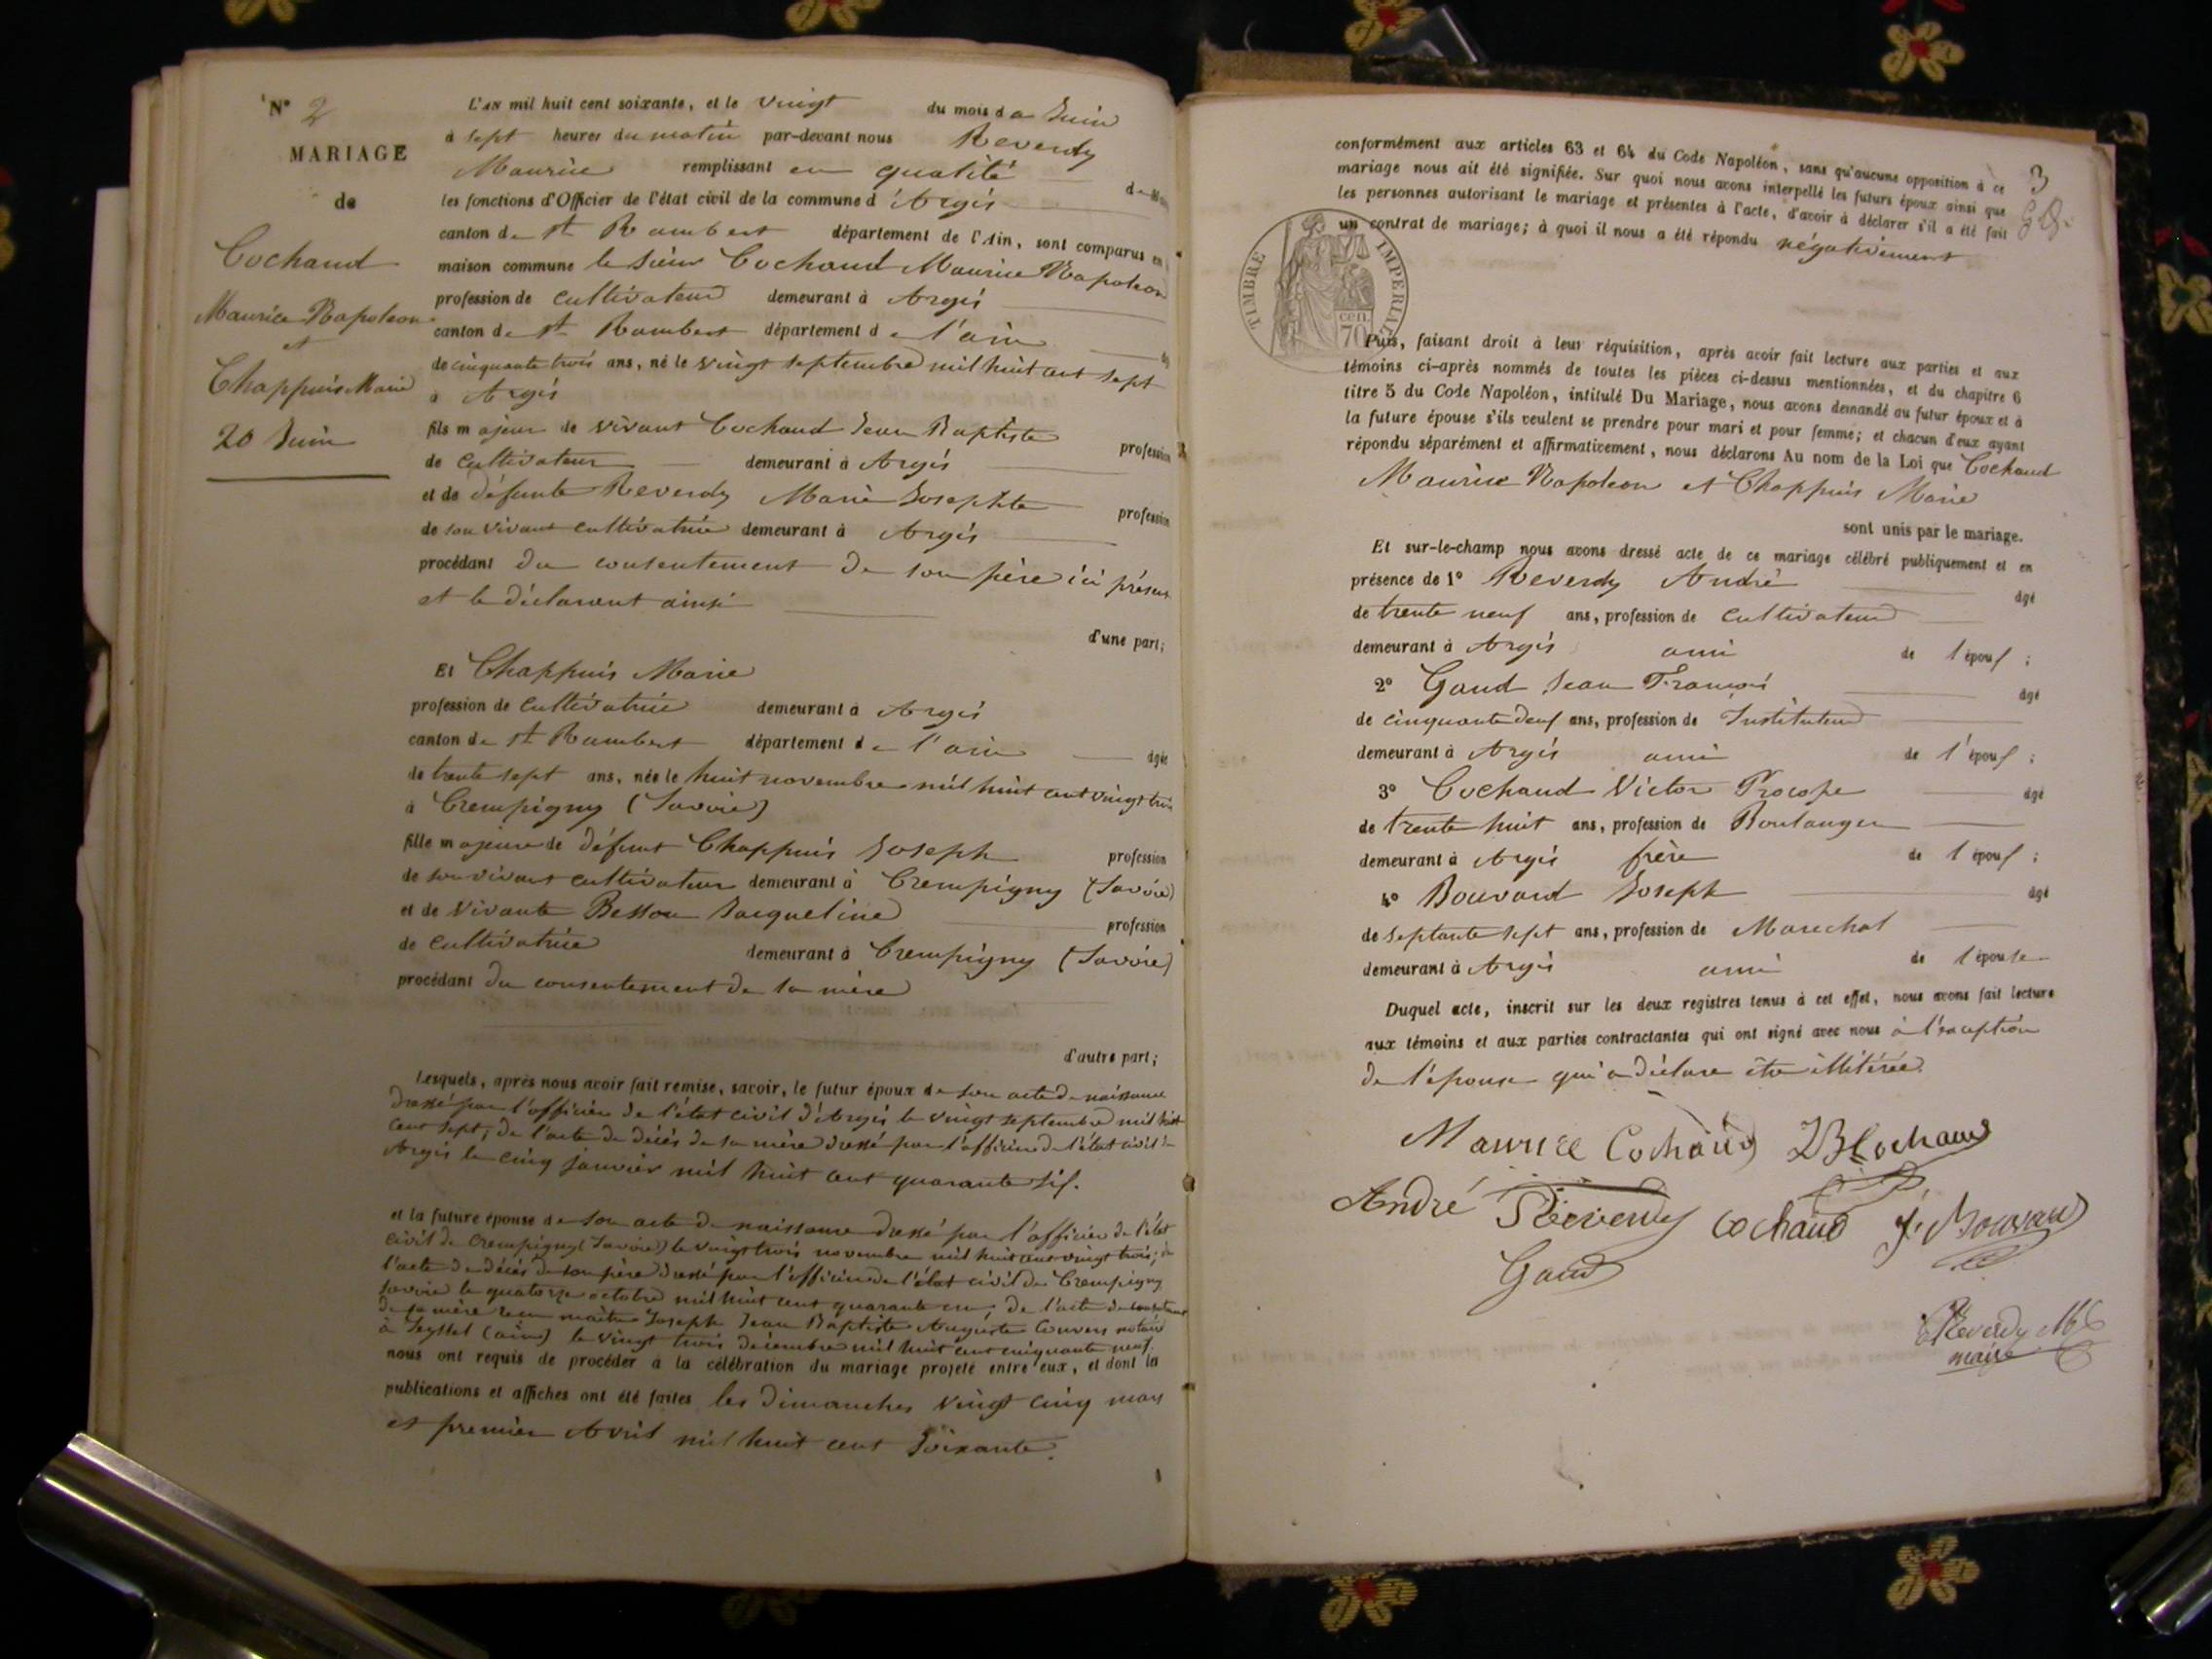 N° 2
MARIAGE
de
Cochand
Maurice Napoleon
et
Chappuis Marie
20 Juin
L'AN mil huit cent soixante, et le vingt du mois de Juin
à sept heures du matin par-devant nous Reverdy
Maurice remplissant en qualité de
les fonctions d'Officier de l'état civil de la commune d'Argis
canton de St Rambert département de l'Ain, sont comparus en
maison commune le sieur Cochand Maurice Napoleon
profession de cultivateur demeurant à Argis
canton de St Rambert département de l'ain
de cinquante trois ans, né le vingt septembre mil huit cent sept
à Argis
fils majeur de vivant Cochand Jean Baptiste profession
de cultivateur demeurant à Argis
et de défunte Reverdy Marie Josephte profession
de son vivant cultivatrice demeurant à Argis
procédant du consentement de son père ici présent
et le déclarant ainsi
d'une part;
Et Chappuis Marie
profession de cultivatrice demeurant à Argis
canton de St Rambert département de l'ain âgée
de trente sept ans, née le huit novembre mil huit cent vingt trois
à Crempigny (Savoie)
fille majeure de défunt Chappuis Joseph profession
de son vivant cultivateur demeurant à Crempigny (Savoie)
et de vivante Besson Jacqueline profession
de cultivatrice demeurant à Crempigny (Savoie)
procédant du consentement de sa mère
d'autre part;
Lesquels, après nous avoir fait remise, savoir, le futur époux de son acte de naissance
dressé par l'officier de l'état civil d'Argis le vingt septembre mil huit
cent sept; de l'acte de décès de sa mère dressé par l'officier de l'état civil d'
Argis le cinq janvier mil huit cent quarante six.
et la future épouse de son acte de naissance dressé par l'officier de l'état
civil de Crempigny (Savoie) le vingt trois novembre mil huit cent vingt trois; de
l'acte de décès de son père dressé par l'officier de l'état civil de Crempigny
Savoie le quatorze octobre mil huit cent quarante un, de l'acte de consentement
de sa mère reçu maître Joseph Jean Baptiste Auguste notaire
à Seyssel (ain) le vingt trois décembre mil huit cent cinquante neuf.
nous ont requis de procéder à la célébration du mariage projeté entre eux, et dont les
publications et affiches ont été faites les dimanches vingt cinq mars
et premier Avril mil huit cent soixante.
3
conformément aux articles 63 et 64 du Code Napoléon, sans qu'aucune opposition à ce
mariage nous ait été signifiée. Sur quoi nous avons interpellé les futurs époux ainsi que
les personnes autorisant le mariage et présentes à l'acte, d'avoir à déclarer s'il a été fait
un contrat de mariage; à quoi il nous a été répondu négativement
TIMBRE IMPERIAL
70 cen.
Puis, faisant droit à leur réquisition, après avoir fait lecture aux parties et aux
témoins ci-après nommés de toutes les pièces ci-dessus mentionnées, et du chapitre 6
titre 5 du Code Napoléon, intitulé Du Mariage, nous avons demandé au futur époux et à
la future épouse s'ils veulent se prendre pour mari et pour femme; et chacun d'eux ayant
répondu séparément et affirmativement, nous déclarons Au nom de la Loi que Cochand
Maurice Napoleon et Chappuis Marie
sont unis par le mariage.
Et sur-le-champ nous avons dressé acte de ce mariage célébré publiquement et en
présence de 1° Reverdy André âgé
de trente neuf ans, profession de cultivateur
demeurant à Argis ami de l'époux;
2° Gaud Jean François âgé
de cinquante deux ans, profession de Instituteur
demeurant à Argis ami de l'époux;
3° Cochand Victor Procope âgé
de trente huit ans, profession de Boulanger
demeurant à Argis frère de l'époux;
4° Bouvard Joseph âgé
de septante sept ans, profession de Marechal
demeurant à Argis ami de l'épouse
Duquel acte, inscrit sur les deux registres tenus à cet effet, nous avons fait lecture
aux témoins et aux parties contractantes qui ont signé avec nous à l'exception
de l'épouse qui a déclaré être illitérée.
Maurice Cochand JB Cochand
André Reverdy cochand J. Bouvard
Gaud
Reverdy
maire